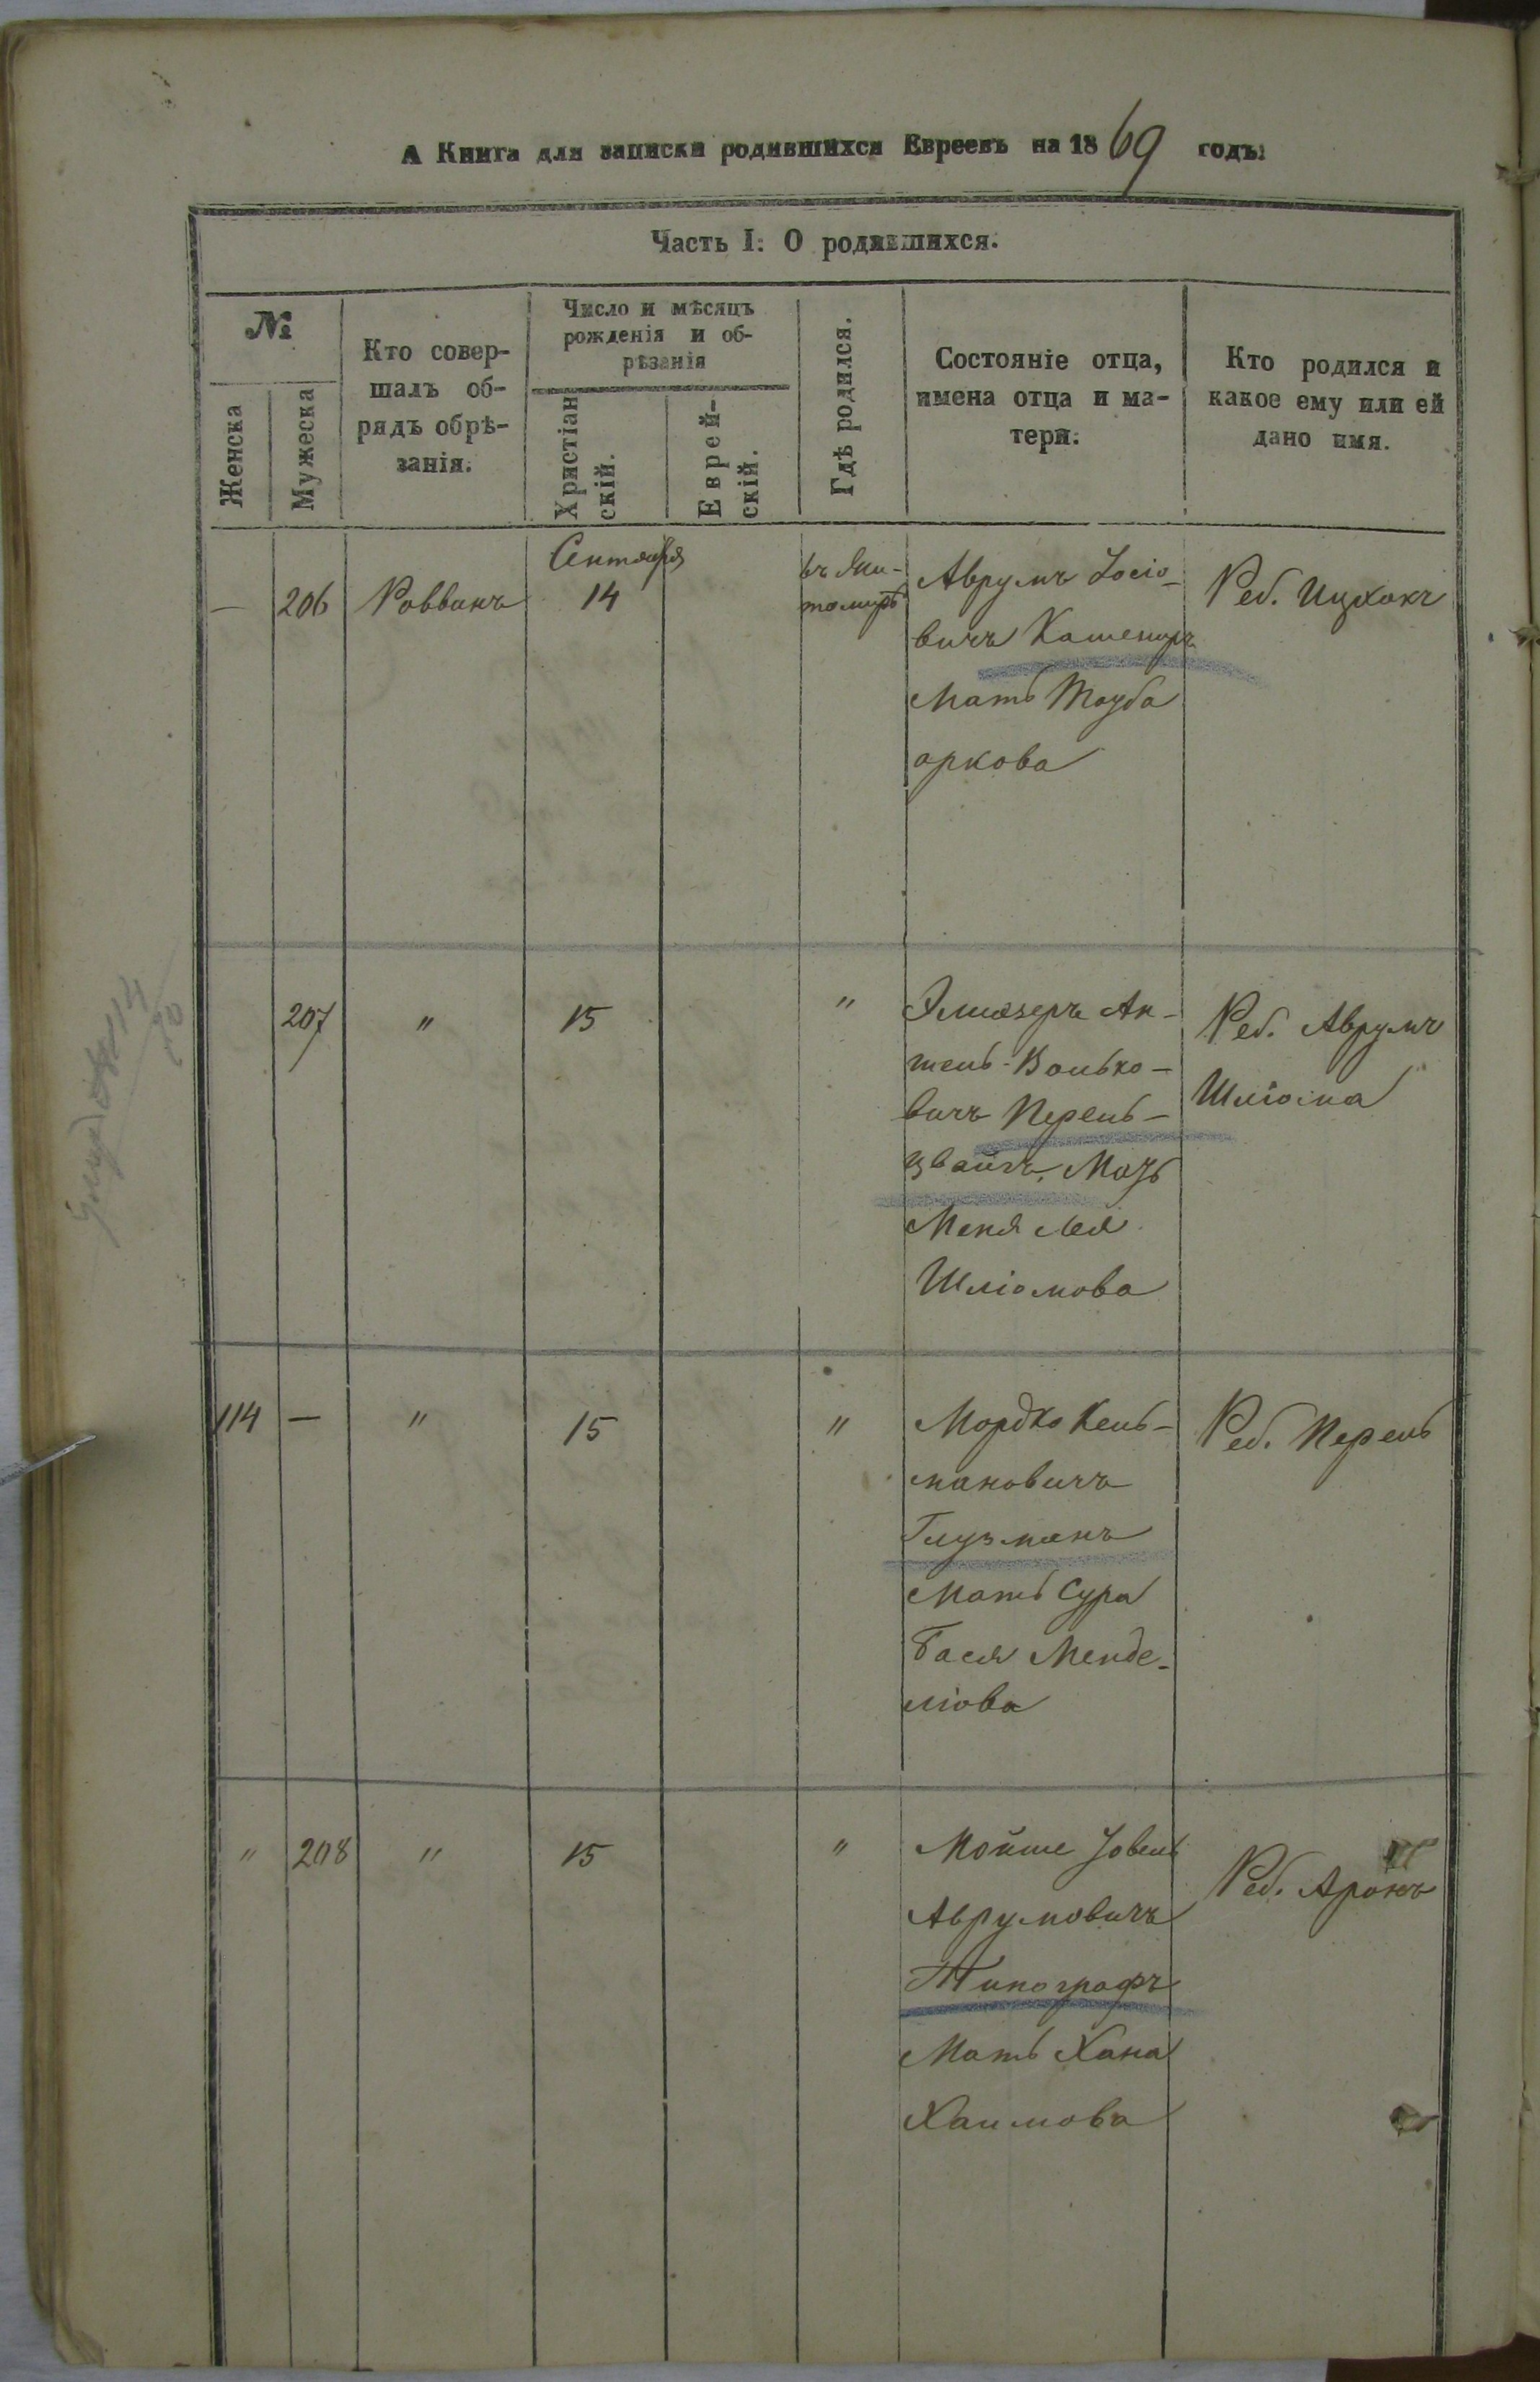 А Книга для записки родившихся Евреевъ на 1869 годъ:
Часть I: О родившихся.
№
Женска
Мужеска
Кто совер-
шалъ об-
рядъ обрѣ-
занія.
Число и мѣсяцъ
рожденія и об-
рѣзанія
Христіан
скій.
Еврей-
скій.
Гдѣ родился.
Состояніе отца,
имена отца и ма-
тери:
Кто родился и
какое ему или ей
дано имя.
Сентября
— 206 Роввинъ 14
въ Жи-
томирѣ
Аврумъ Іосіо-
вичъ Кашеиръ
Мать Тауба
аркова
Реб. Ицхокъ
207 " 15 "
Элиазеръ Ан-
шель-Волько-
вичъ Перель-
цвайгъ, Мать
Меня Лея
Шліомова
Реб. Аврумъ
Шліома
114 — " 15 "
Мордко Кель-
мановичъ
Глузманъ
Мать Сура
Бася Менде-
ліова
Реб. Перель
" 208 " 15 "
Мойше Іовель
Аврумовичъ
Типографъ
Мать Хана
Хаимова
Реб. Аронъ